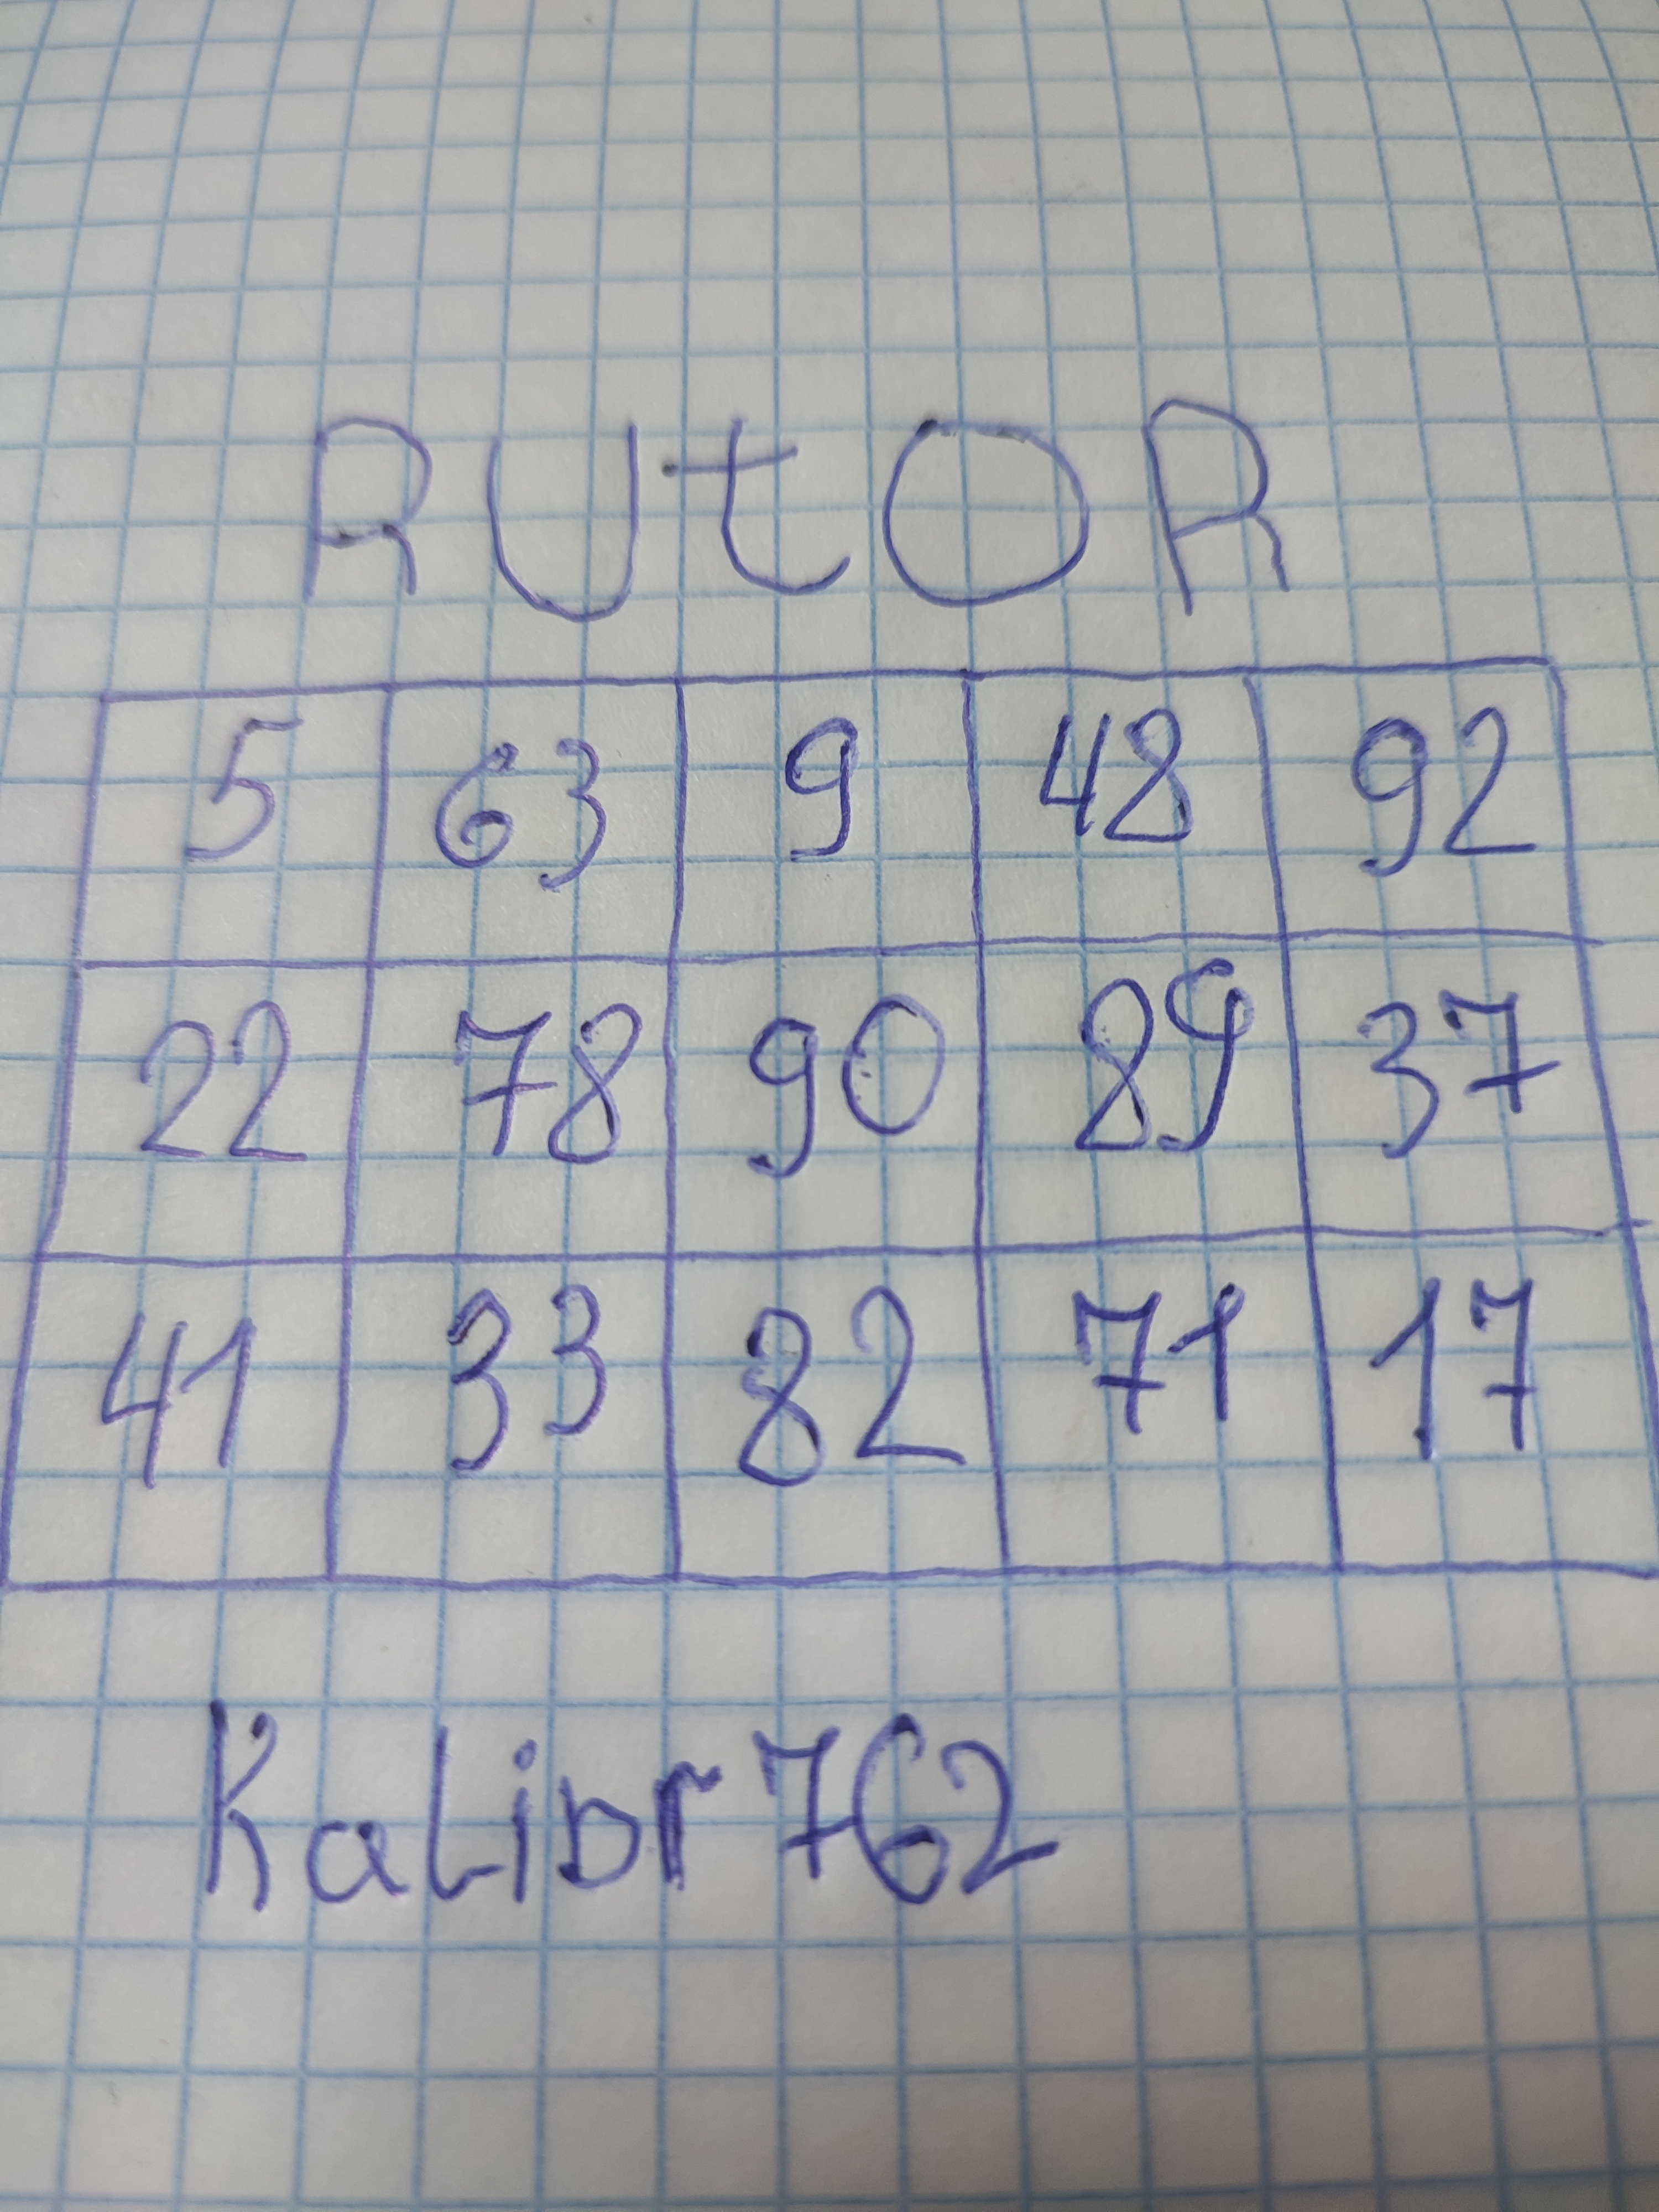 RUtOR
5 63 9 48 92
22 78 90 89 37
41 33 82 71 17
KaLibr762